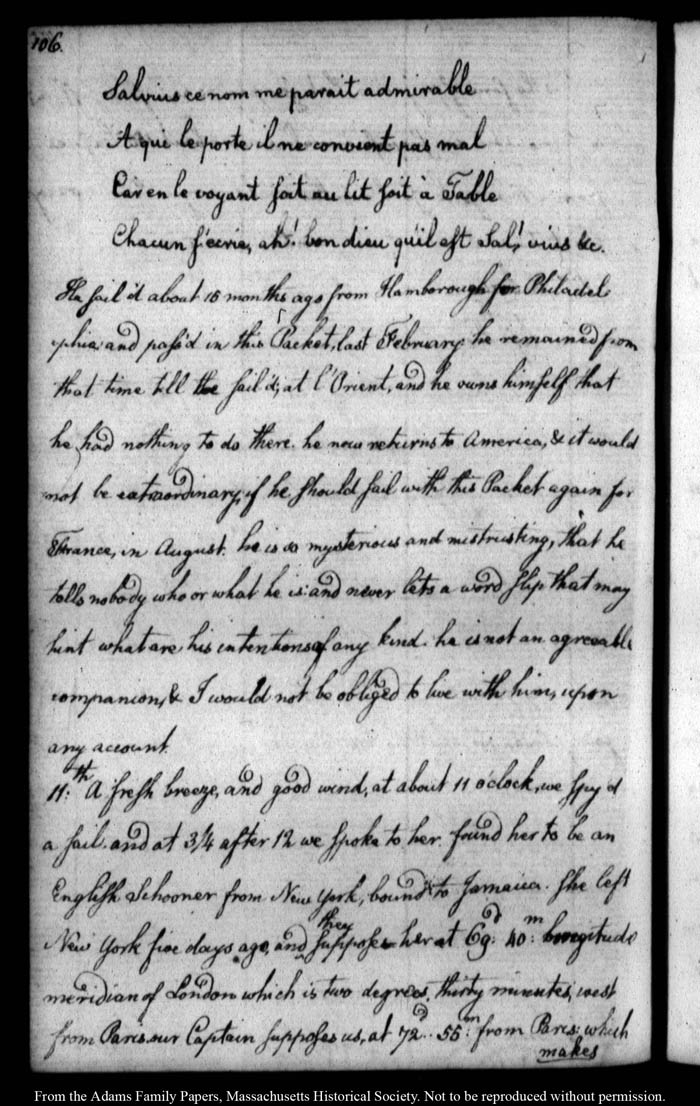 106.
Salvius ce nom me parait admirable
A qui le porte il ne convient pas mal
Car en le voyant soit au lit soit à Table
Chacun s'écrie, ah! bon dieu qu'il est Sal! vius &c.
He sail'd about 15 months ago from Hamborough for Philadel
phia: and pass'd in this Packet, last February he remained from
that time till the sail'd, at l'Orient, and he owns himself that
he had nothing to do there. he now returns to America, & it would
not be extraordinary, if he should sail with this Packet again for
France, in August. he is so mysterious and mistrusting, that he
tells nobody who or what he is: and never lets a word slip that may
hint what are his intentions of any kind. he is not an agreeable
companion, & I would not be obliged to live with him, upon
any account.
11:th A fresh breeze, and good wind, at about 11 oclock, we spy'd
a sail. and at 3/4 after 12 we spoke to her. found her to be an
English Schooner from New York, bound to Jamaica. She left
New York five days ago, and they suppose her at 69:d 40:m longitude
meridian of London which is two degrees, thirty minutes, west
from Paris. our Captain supposes us, at 72d.. 55:m from Paris: which
makes
From the Adams Family Papers, Massachusetts Historical Society. Not to be reproduced without permission.